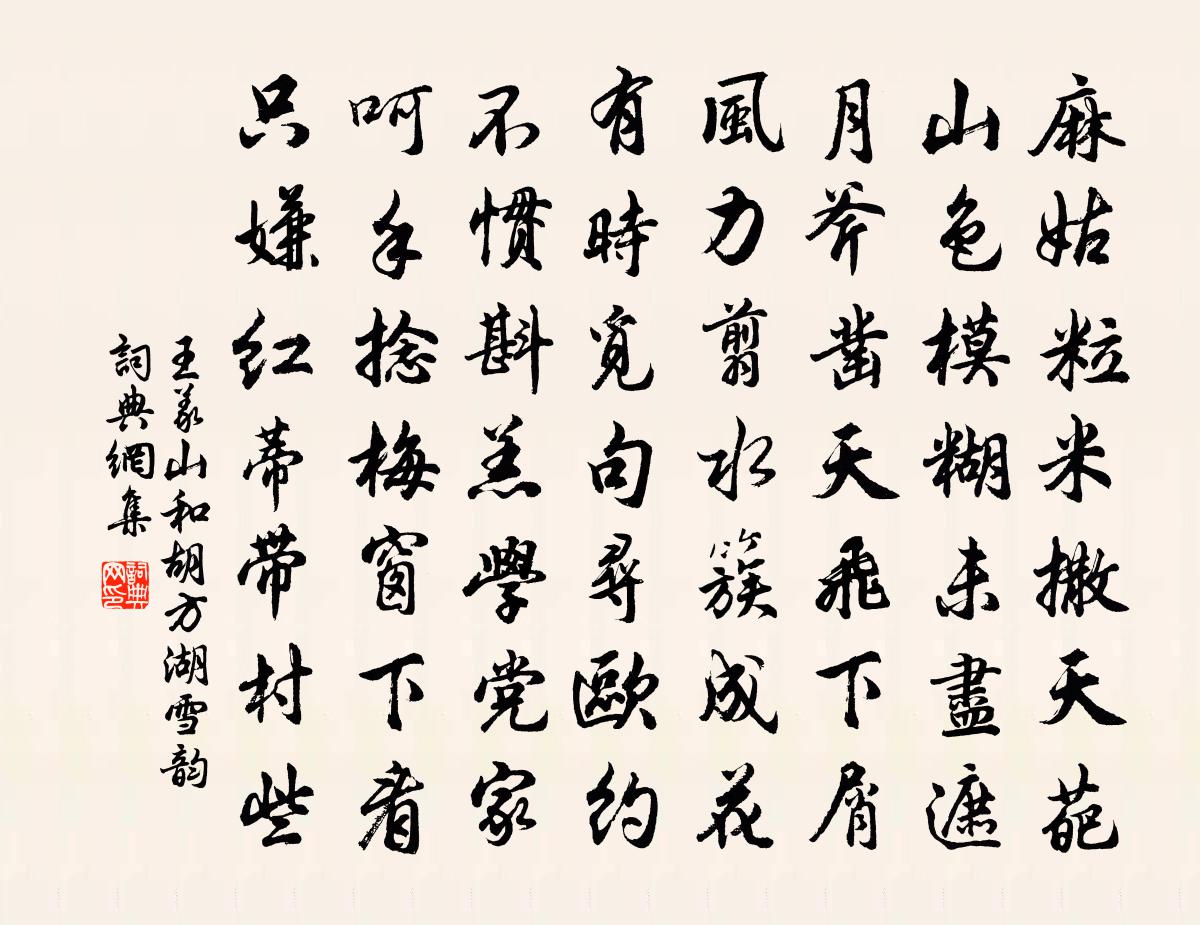 麻姑粒米撒天葩
山色模糊未盡遮
月斧鑿天飛下屑
風力翦水簇成花
有時覓句尋歐約
不慣斟羔學党家
呵手捻梅窗下看
只嫌红蒂帶村些
王義山和胡方湖雪韵
詞典網集
詞典网印